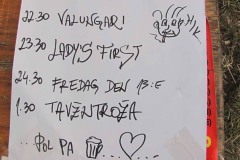 22.30 VALUNGAR!
HIK
23.30 LADY'S FIRST
24.30 FREDAG DEN 13:E
1.30 TAVŽENTROŽA
...POL PA